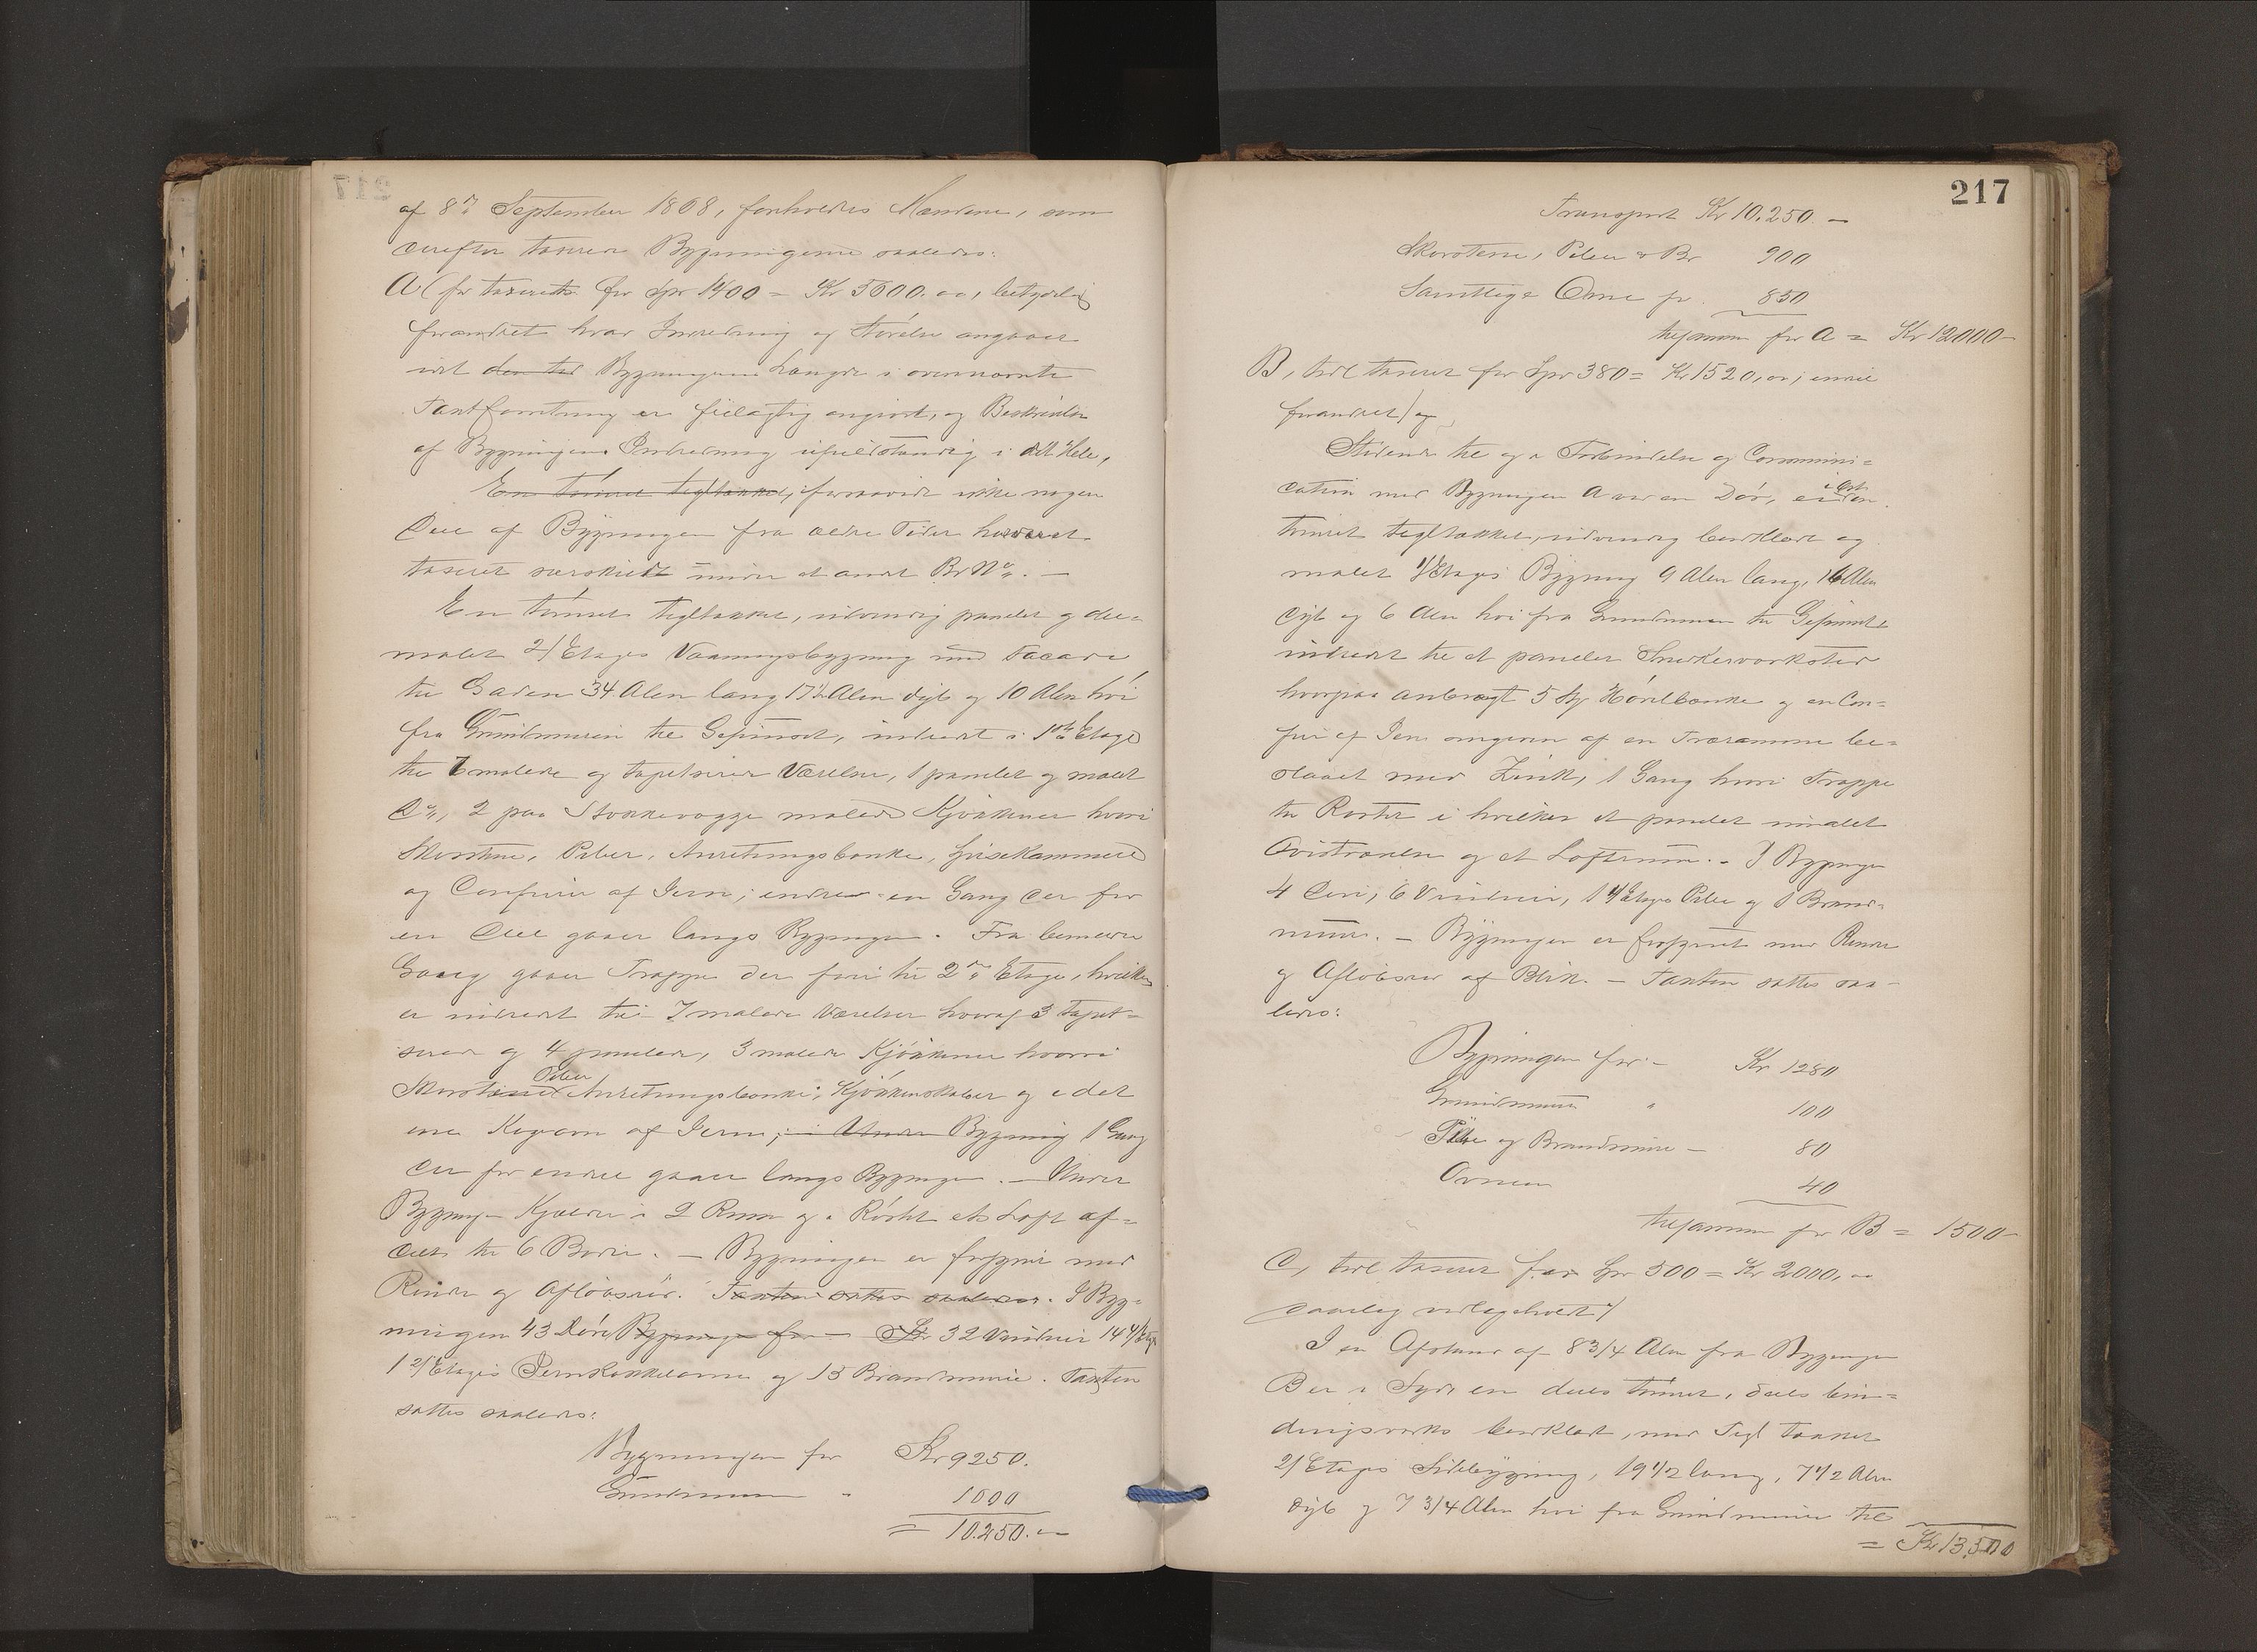 af 8de September 1868, forholdtes Mændene, som
derefter taxerede Bygningerne saaledes:
A (før taxeret for Spr 1400 = Kr 5600.00, betydelig
forandret hvad Indredning og Størelse angaaer
idet den ted Bygningens Længde i ovennævnte
Taxtforretning er feilagtig angivet, og Beskrivelsen
af Bygningens Indredning ufuldstændig i det Hele,
En tømret tegltækket, forsaavidt ikke nogen
Deel af Bygningen fra ældre Tider har været
taxeret særskildt under et andet Br No. —
En tømret tegltækket, udvendig panelet og olie-
malet 2/Etages Vaaningsbygning med Facade
til Gaden 34 Alen lang 17½ Alen dyb og 10 Alen høi
fra Grundmuren til Gesimset, indredet i 1ste Etage
til 6 malede og tapetserede Værelser, 1 panelet og malet
Do, 2 paa Stokkevægge malede Kjøkkener hvori
Skorstene, Piber, Anretningsbænke, Spisekammere
og Comfurer af Jern; endvidere en Gang der for
en Deel gaaer langs Bygningen. Fra bemeldte
Gang gaaer Trappe der fører til 2den Etage, hvilken
er indredet til 7 malede Værelser hvoraf 3 tapet-
serede og 4 panelede, 3 malede Kjøkkener hvori
Piber
Skorstene Anretningsbænke, Kjøkkenskaber og i det
ene Kogeovn af Jern; i Under Bygning 1 Gang
der for endeel gaaer langs Bygningen. — Under
Bygningen Kjælder i 2 Rum og i Røstet et Loft af-
deelt til 6 Boder. — Bygningen er forsynet med
Render og Afløbsrør. Taxten sattes saaledes. I Byg-
ningen 43 Døre Bygningen for — Kr 32 Vinduer 14 4/Etgs
1 2/Etages Jernkakkelovne og 13 Brandmure. Taxten
sattes saaledes:
Bygningen for Kr 9250.
Grundmuren " 1000
= 10.250.—
217
Transport Kr 10.250.—
Skorstene, Piber & Br 900
Samtlige Ovne for 850
tilsammen for A = Kr 12000-
B, (før taxeret for Spr 380 = Kr 1520,00; endeel
forandret) og
Stødende til og i Forbindelse og Communi-
cation med Bygningen A ved en Dør, er i Øst en
tømret tegltækket, udvendig bordklædt og
malet 1/Etages Bygning 9 Alen lang, 16 Alen
dyb og 6 Alen høi fra Grundmuren til Gesimset
indredet til et panelet Snedkerværksted
hvorpaa anbragt 5 Stk Høvelbænke og en Com-
fur af Jern omgiven af en Træramme be-
slaaet med Zink, 1 Gang hvori Trappe
til Røstet i hvilket et panelet umalet
Qvistværelse og et Loftsrum. - I Bygningen
4 Døre, 6 Vinduer, 1 4/Etages Pibe og 1 Brand-
muur. — Bygningen er forsynet med Render
og Afløbsrør af Blik. — Taxten sattes saa-
ledes:
Bygningen for - Kr 1280
Grundmuren " 100
Pibe og Brandmuren — 80
Ovnen 40
tilsammen for B = 1500-
C, (før taxeret for Spr 500 = Kr 2000,00
daarlig vedligeholdt)
I en Afstand af 8 3/4 Alen fra Bygningen
B er i Syd en deels tømret, deels bin-
dingsverks bordklædt, med Tegl tækket
2/Etages Sidebygning, 19 1/2 lang, 7 1/2 Alen
dyb og 7 3/4 Alen høi fra Grundmuren til
= Kr 13,500